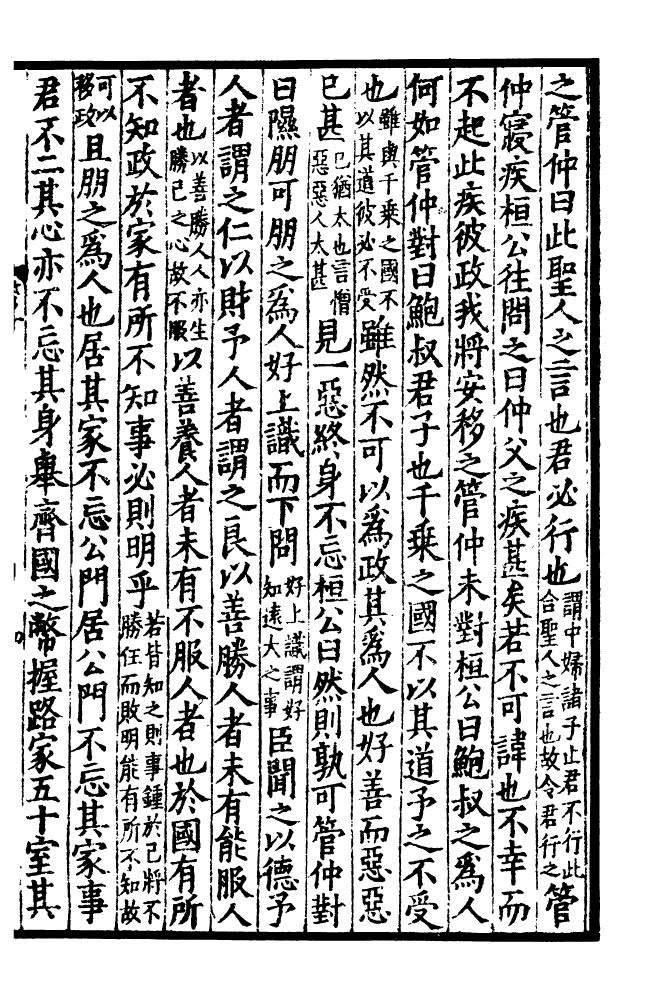 之管仲曰此聖人之言也君必行也謂中婦諸子止君不行此合聖人之言也故令君行之管
仲寢疾桓公往問之曰仲父之疾甚矣若不可諱也不幸而
不起此疾彼政我將安移之管仲未對桓公曰鮑叔之爲人
何如管仲對曰鮑叔君子也千乗之國不以其道予之不受
也雖與千乗之國不以其道彼必不受雖然不可以爲政其爲人也好善而惡惡
已甚已猶太也言憎惡惡人太甚見一惡終身不忘桓公曰然則孰可管仲對
曰隰朋可朋之爲人好上識而下問好上識謂好知遠大之事臣聞之以德予
人者謂之仁以財予人者謂之良以善勝人者未有能服人
者也以善勝人人亦生勝己之心故不服以善養人者未有不服人者也於國有所
不知政於家有所不知事必則明乎若皆知之則事鍾於己將不勝任而敗明能有所不知故
可以移政且朋之爲人也居其家不忘公門居公門不忘其家事
君不二其心亦不忘其身舉齊國之幣握路家五十室其